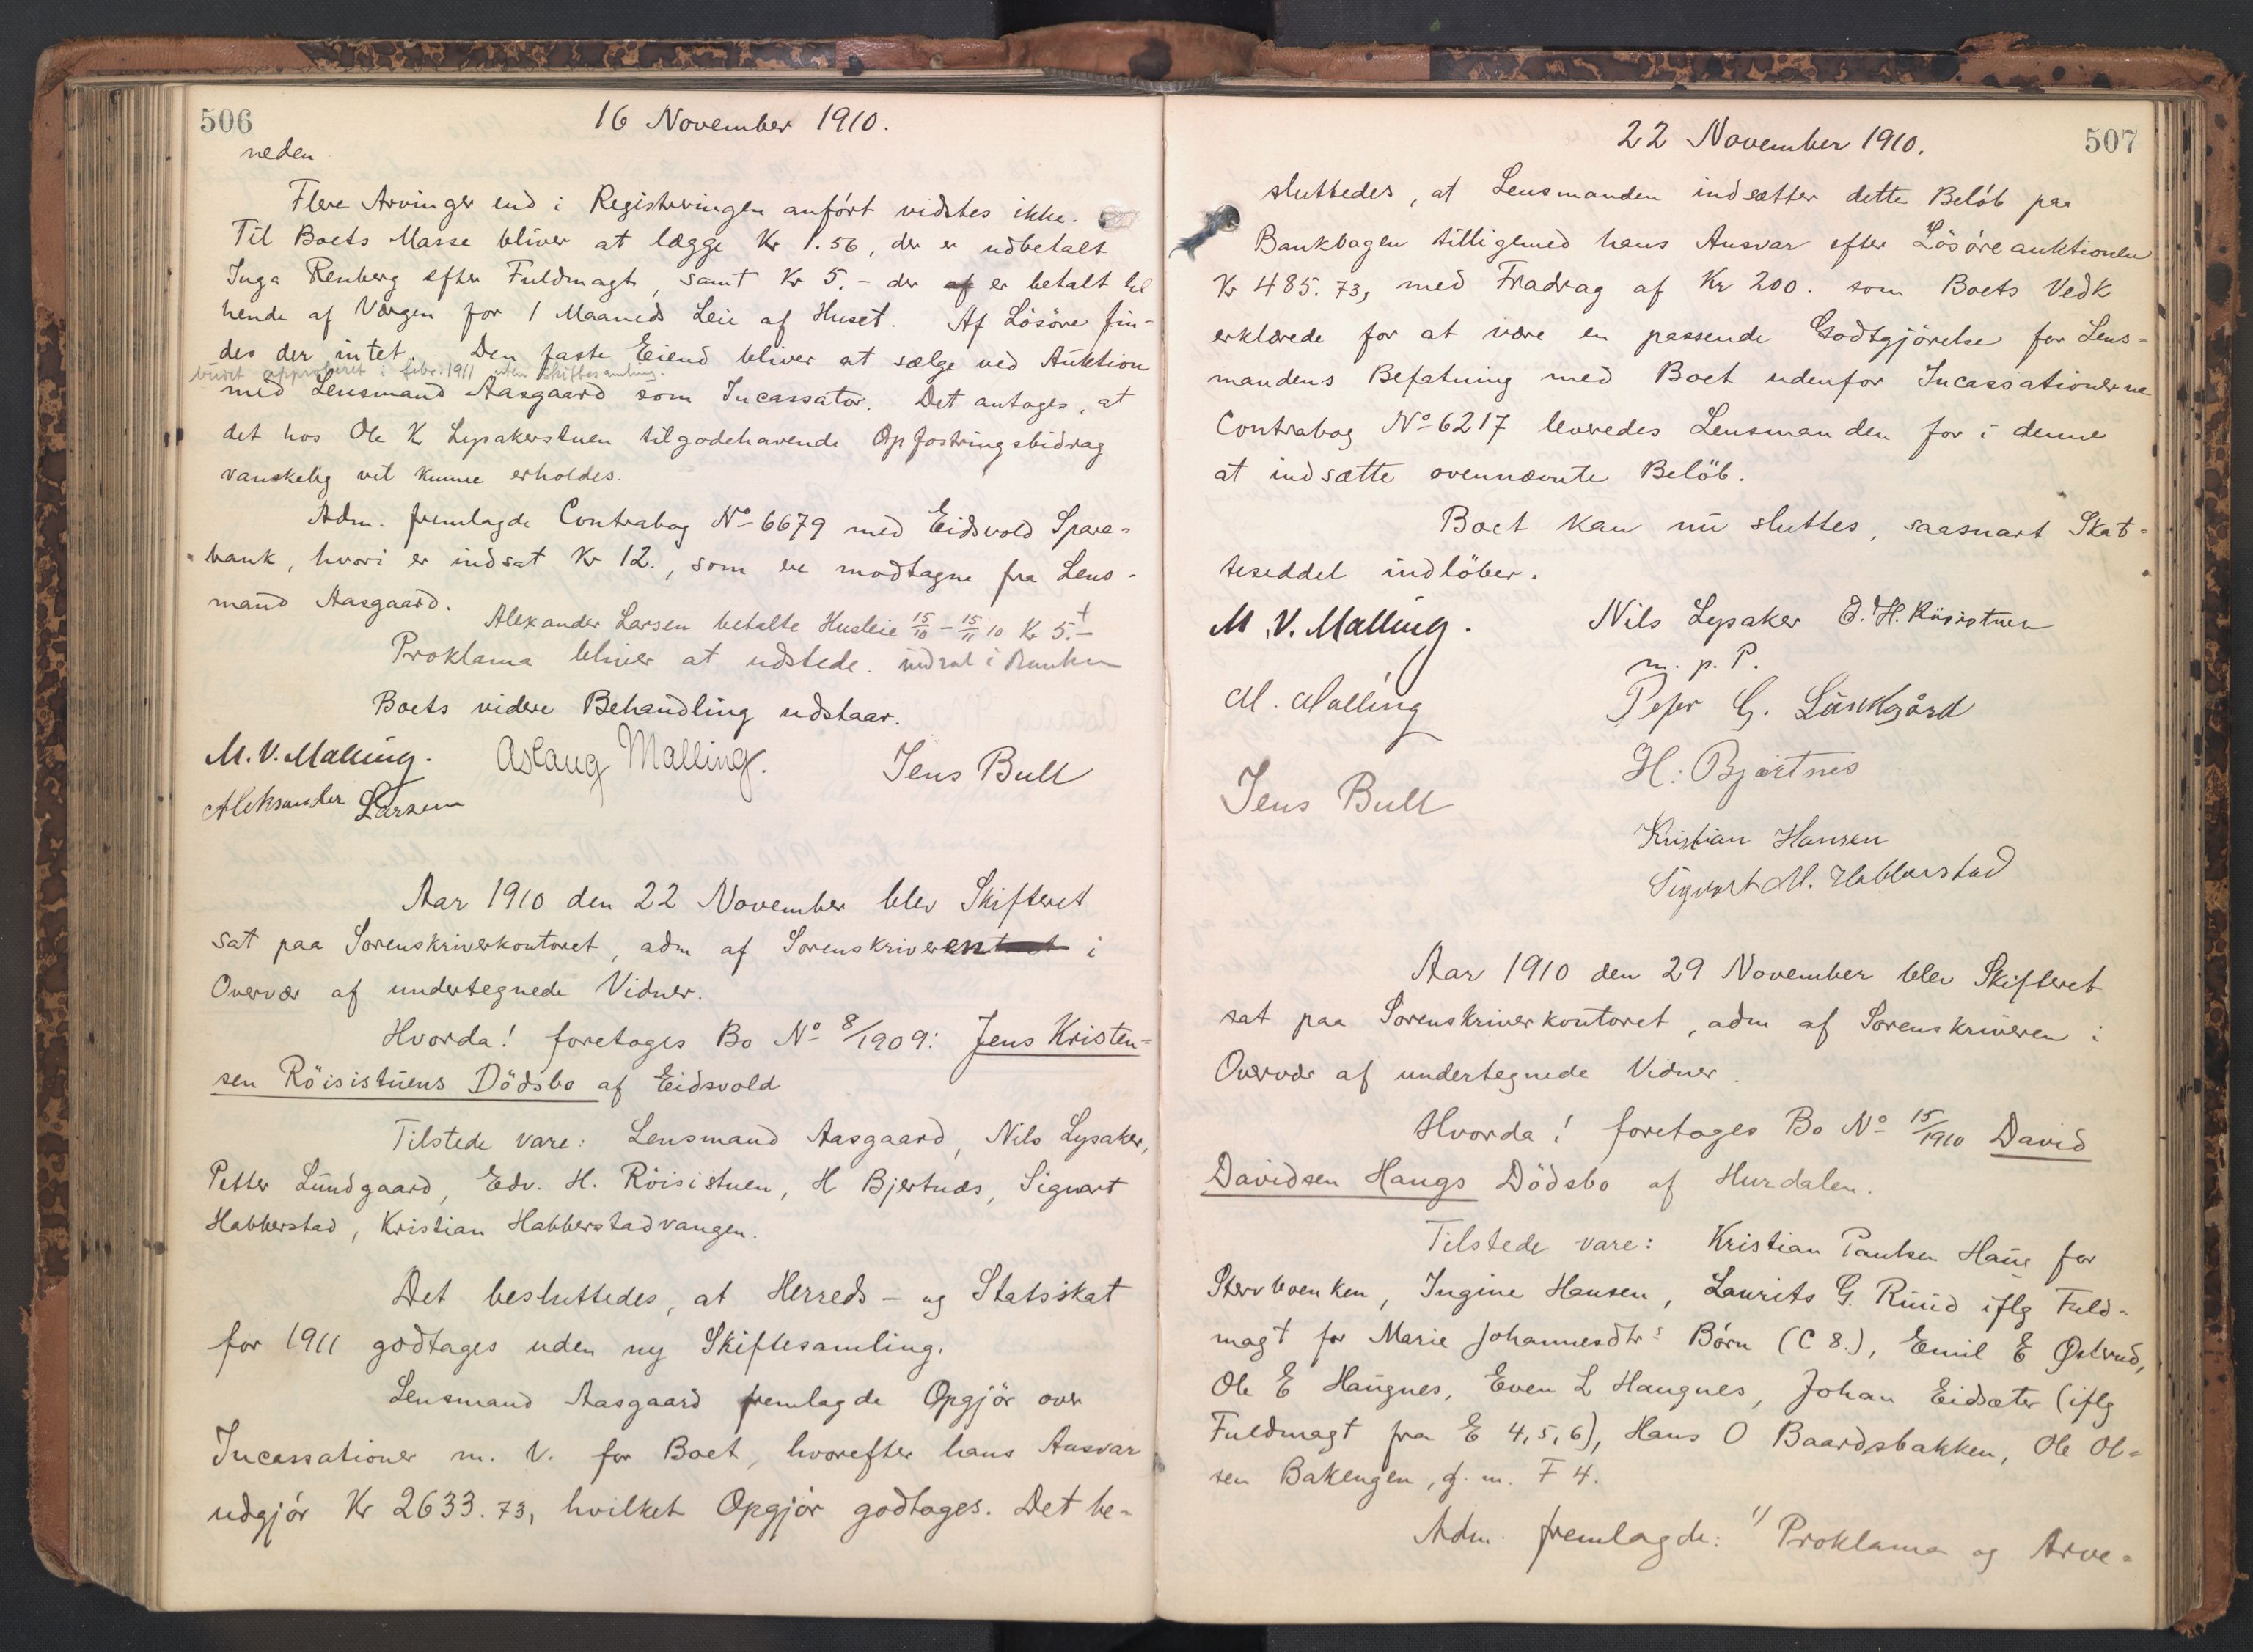 506
16 November 1910.
neden
Flere Arvinger end i Registreringen anført vidstes ikke.
Til Boets Masse bliver at lægge Kr 1.56, der er udbetalt
Inga Renberg efter Fuldmagt, samt Kr 5.- der af er betalt til
hende af Værgen for 1 Maaneds Leie af Huset. Af Løsøre fin-
des der intet. Den faste Eiend bliver at sælge ved Auktion
budet approberet i febr. 1911 uten Skiftesamling.
med Lensmand Aasgaard som Incassator. Det antoges, at
det hos Ole K Lysakerstuen tilgodehavende Opfostringsbidrag
vanskelig vil kunne erholdes.
Adm. fremlagde Contrabog No 6679 med Eidsvold Spare-
bank, hvori er indsat Kr 12., som er modtagne fra Lens-
mand Aasgaard. Alexander Larsen betalte Husleie 15/10 - 15/11 10 Kr 5.-
Proklama bliver at udstede. indsat i Banken
Boets videre Behandling udstaar.
M. V. Malling. Aslaug Malling. Jens Bull
Aleksander Larsen
Aar 1910 den 22 November blev Skifteret
sat paa Sorenskriverkontoret, adm af Sorenskriveren i
Overvær af undertegnede Vidner.
Hvorda! foretoges Bo No 8/1909: Jens Kristen-
sen Röisistuens Dödsbo af Eidsvold
Tilstede vare: Lensmand Aasgaard, Nils Lysaker,
Petter Lundgaard, Edv. H. Röisistuen, H Bjertnæs, Sigvart
Habberstad, Kristian Habberstadvangen.
Det besluttedes, at Herreds- og Statsskat
for 1911 godtages uden ny Skiftesamling.
Lensmand Aasgaard fremlagde Opgjör over
Incassationer m. V. for Boet, hvorefter hans Ansvar
udgjör Kr 2633.73, hvilket Opgjör godtoges. Det be-
22 November 1910.
507
sluttedes, at Lensmanden indsætter dette Beløb paa
Bankbogen tilligemed hans Ansvar efter Lösöreauktionen
Kr 485.73, med Fradrag af Kr 200. som Boets Vedk
erklærede for at være en passende Godtgjörelse for Lens-
mandens Befatning med Boet udenfor Incassationerne
Contrabog No 6217 leveredes Lensmanden for i denne
at indsætte ovennævnte Belöb.
Boet kan nu sluttes, saasnart Skat-
teseddel indlöber.
M. V. Malling. Nils Lysaker E. H. Röisistuen
m. p. P.
M. Malling Peter G. Lundgård
H: Bjærtnes
Jens Bull
Kristian Hansen
Sigvart M. Habberstad
Aar 1910 den 29 November blev Skifteret
sat paa Sorenskriverkontoret, adm af Sorenskriveren i
Overvær af undertegnede Vidner.
Hvorda! foretoges Bo No 15/1910 David
Davidsen Haugs Dödsbo af Hurdalen.
Tilstede vare: Kristian Paulsen Haug for
Stervboenken, Ingine Hansen, Laurits G. Ruud iflg Fuld-
magt for Marie Johannesdtrs Børn (C 8.), Emil E Østerud,
Ole E Haugnes, Even L Haugnes, Johan Eidsæter (iflg
Fuldmagt fra E 4, 5, 6), Hans O Baardsbakken, Ole Ol-
sen Bakengen, g. m. F 4.
Adm. fremlagde: 1) Proklama og Arve-